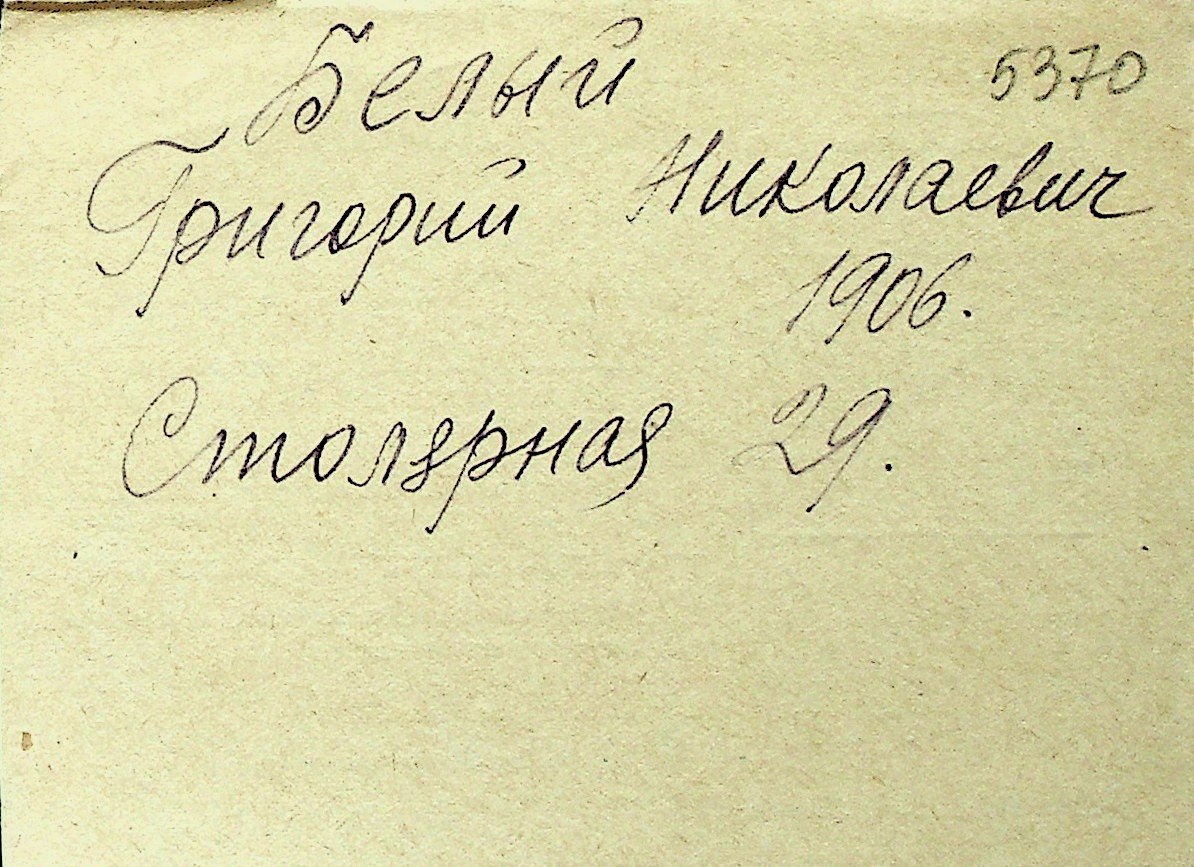 Белый 5370
Григорий Николаевич
1906.
Столярная 29.